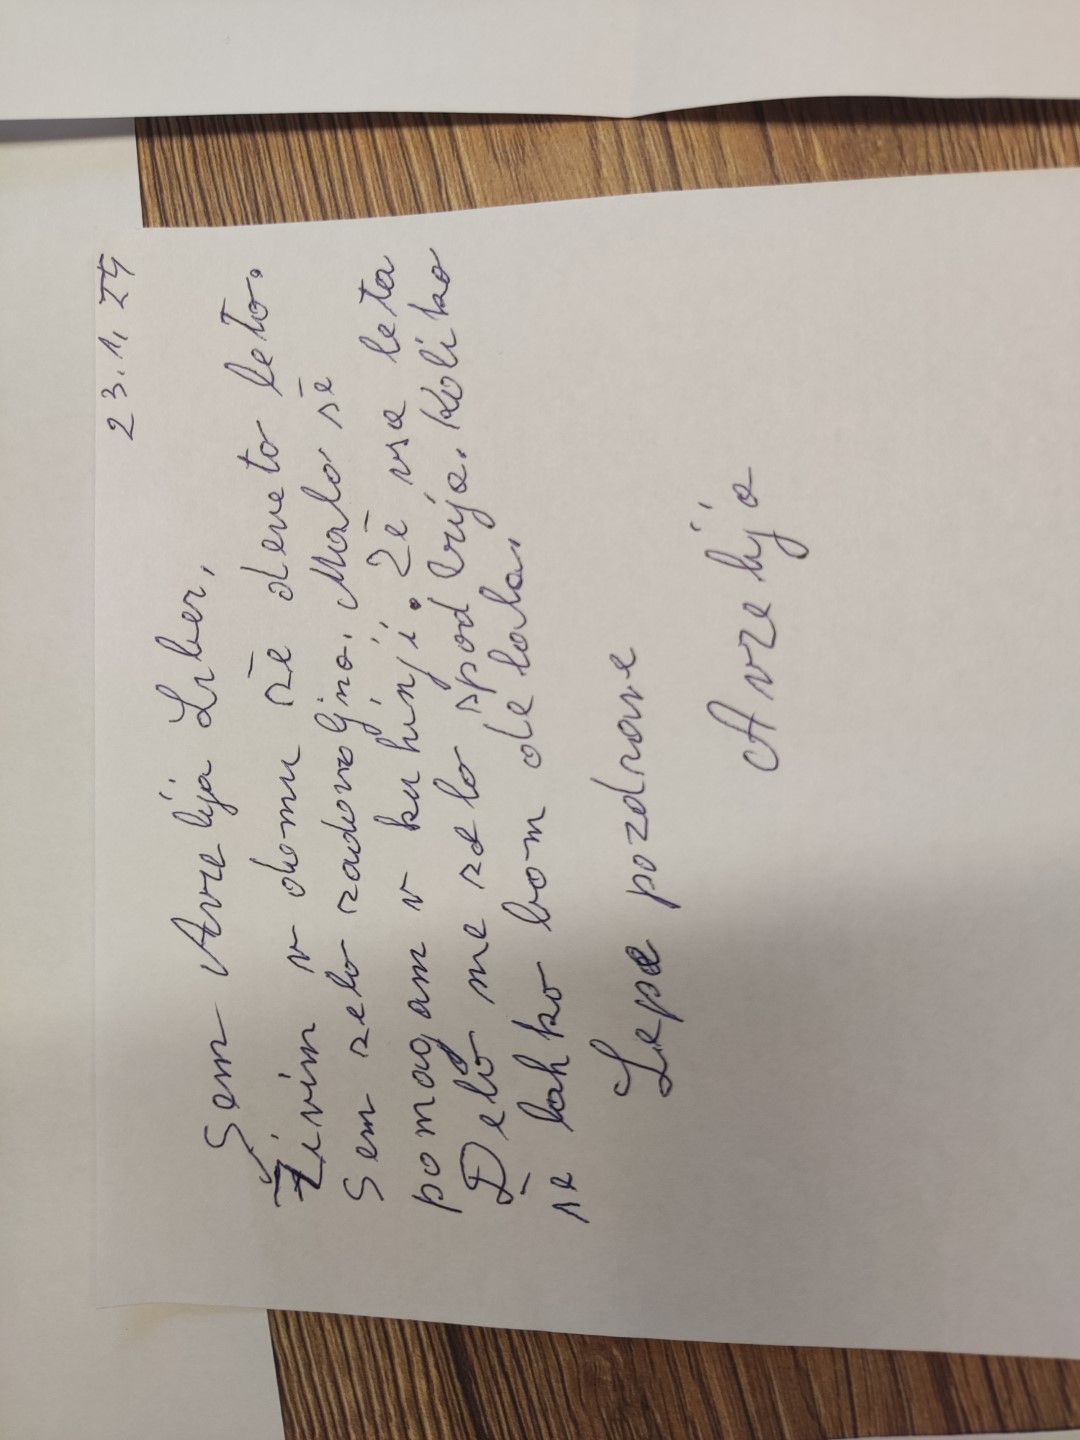 23.1.24
Sem Avrelija Liber,
Živim v domu že deveto leto.
Sem zelo zadovoljna. Malo še
pomagam v kuhinji. Že vsa leta
Delo me zelo spodbuja. Koliko
še lahko bom delala.
Lepe pozdrave
Avrelija